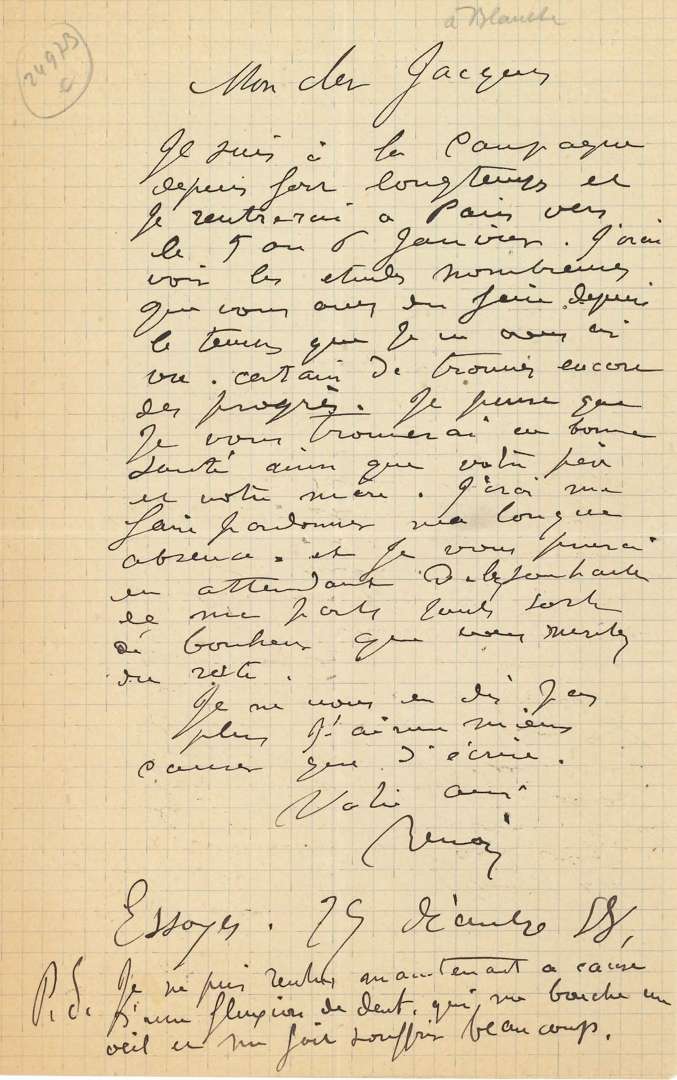 à Blanche
24973
Mon cher Jacques
Je suis à la campagne
depuis fort longtemps et
Je rentrerai a Paris vers
le 5 ou 6 Janvier. J'irai
voir les etudes nombreuses
que vous avez du faire depuis
le temps que Je ne vous ai
vu. certain de trouver encore
des progrès. Je pense que
Je vous trouverai en bonne
santé ainsi que votre père
et votre mère. J'irai me
faire pardonner ma longue
absence. et Je vous
en attendant
de me toute sorte
de bonheur que vous meritez
du reste.
Je ne vous en dis pas
plus J'aime mieux
causer que d'écrire.
Votre ami
Renoir
Essoyes. 29 décembre 88,
P.S. Je ne puis rentrer maintenant a cause
d'une fluxion de dent. qui me bouche un
oeil et me fait souffrir beaucoup.